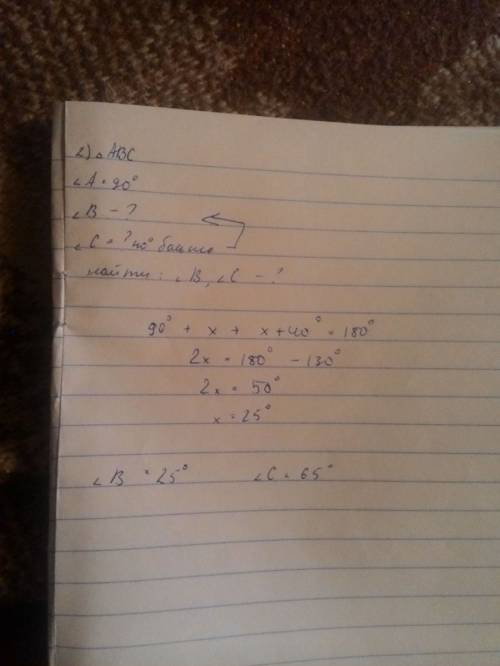 2) △ABC
∠A = 90°
∠B - ?
∠C = ? 40° больше
найти: ∠B, ∠C - ?
90° + x + x + 40° = 180°
2x = 180° - 130°
2x = 50°
x = 25°
∠B = 25° ∠C = 65°